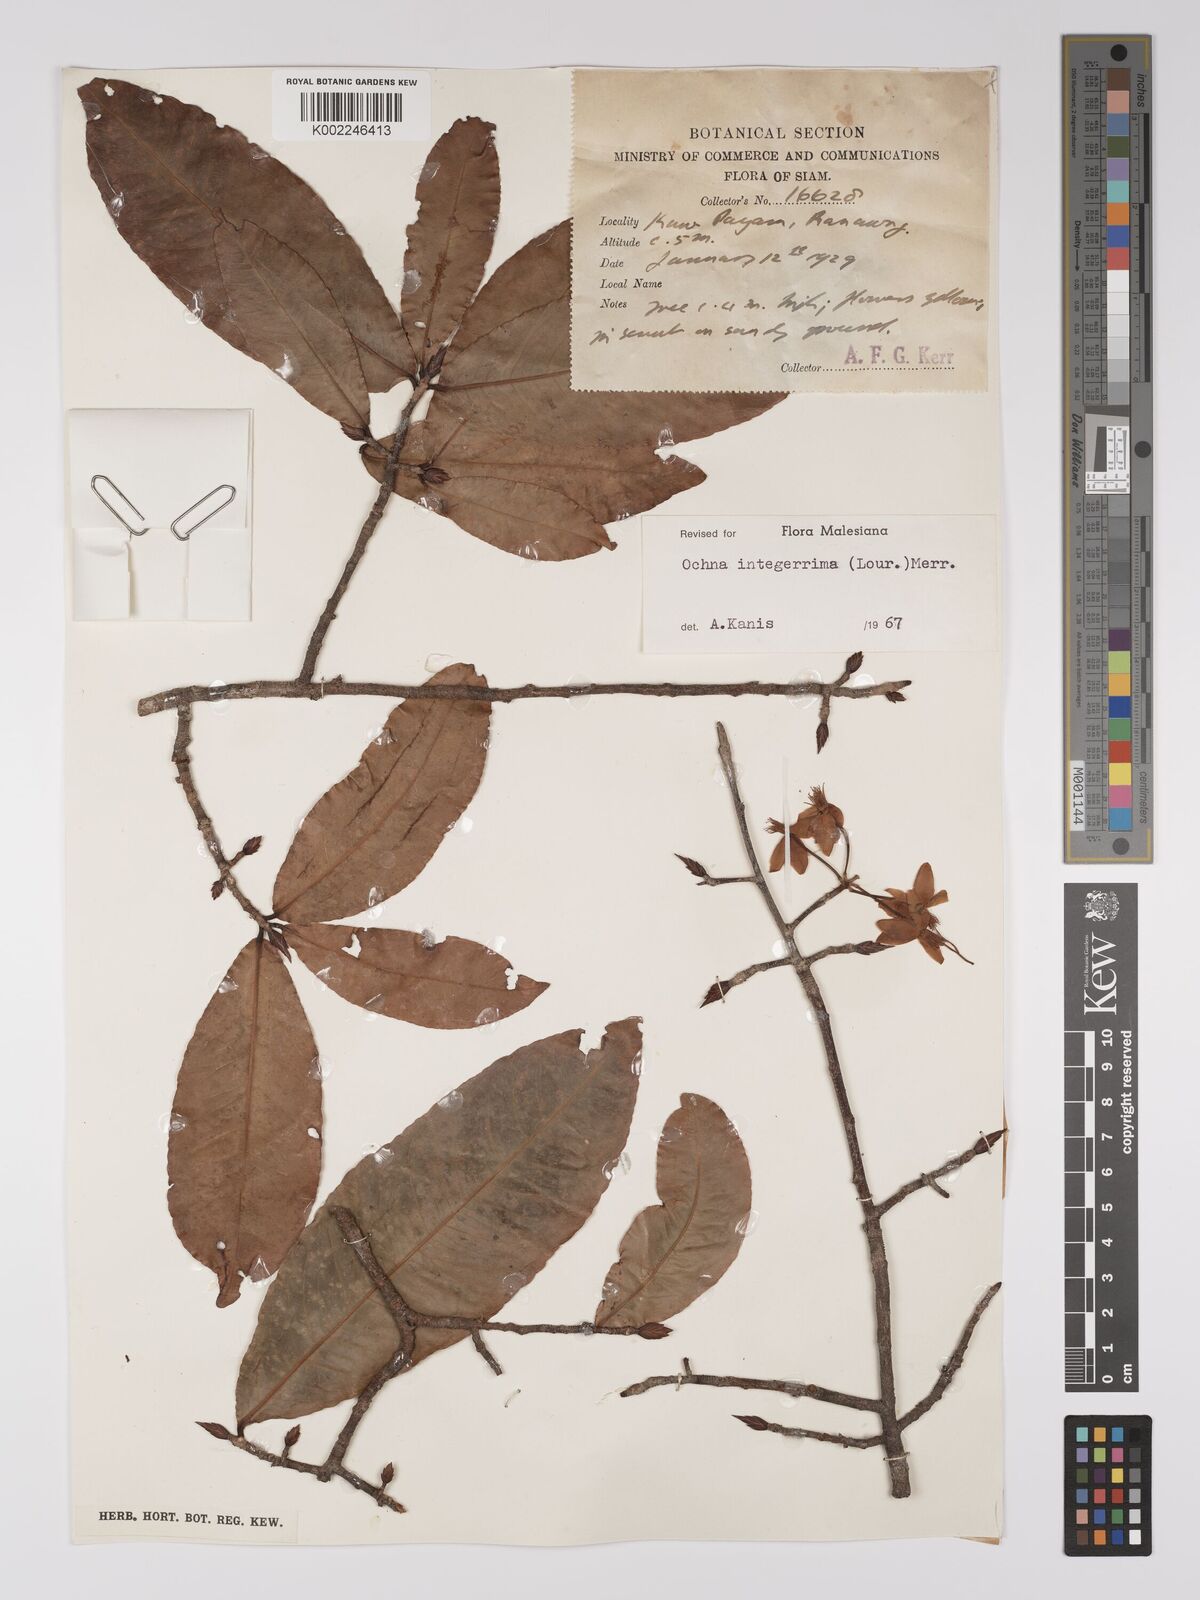 ROYAL BOTANIC GARDENS KEW
K002246413
BOTANICAL SECTION
MINISTRY OF COMMERCE AND COMMUNICATIONS
FLORA OF SIAM.
Collector's No. 16628
Locality Kaw Payam, Ranawng.
Altitude c. 5 m.
Date January 12th 1929
Local Name
Notes Tree c. 4 m. high; flowers yellow,
in scrub on sandy ground.
Collector A. F. G. Kerr
Revised for Flora Malesiana
Ochna integerrima (Lour.)Merr.
det. A.Kanis /19 67
HERB. HORT. BOT. REG. KEW.
inches
centimetres
Don Williams
M001144
Kew
Royal Botanic Gardens
copyright reserved
0 1 2 3 4 5 6 7 8 9 10
cm